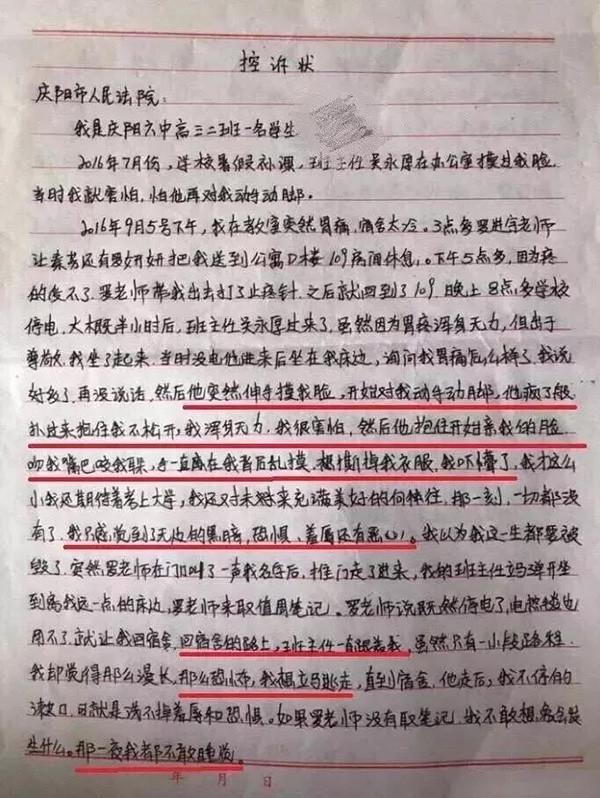 控诉状
庆阳市人民法院：
我是庆阳六中高三二班一名学生
2016年7月份，学校暑假补课，班主任吴永厚在办公室摸过我脸
当时我就害怕，怕他再对我动手动脚。
2016年9月5号下午，我在教室突然胃痛，宿舍太冷。3点多罗进宇老师
让秦芳还有罗妍妍把我送到公寓D楼109病房间休息。下午5点多，因为疼
的受不了.罗老师带我出去打了止疼针.之后就回到了109.晚上8点多学校
停电.大木既半小时后，班主任吴永厚过来了.虽然因为胃疼浑身无力，但出于
尊敬.我坐了起来.当时没电他进来后坐在我床边，询问我胃痛怎么样了.我说
好多了.再没说话.然后他突然伸手摸我脸，开始对我动手动脚，他疯了般
扑过来抱住我不松开，我浑身无力.我很害怕，然后他抱住开始亲我的脸
吻我嘴巴咬我耳朵，手一直在我背后乱摸.想撕掉我衣服，我吓懵了，我才这么
小我还期待着考上大学，我还对未来充满美好的向往，那一刻，一切都没
有了.我只感觉到了无边的黑暗，恐惧、羞辱还有恶心。我以为我这一生都要被
毁了.突然罗老师在门口叫了一声我名字后，推门走了进来，我的班主任立马弹开坐
到离我远一点的床边.罗老师来取值周笔记。罗老师说既然停电了，电热毯也
用不了.就让我回宿舍，回宿舍的路上，班主任一直跟着我，虽然只有一小段路程
我却觉得那么漫长.那么恐怖，我想立马逃走，直到宿舍.他走后，我不停的
漱口.可就是洗不掉羞辱和恐惧。如果罗老师没有取笔记.我不敢想，会发
生什么。那一夜我都不敢睡觉。
年 月 日